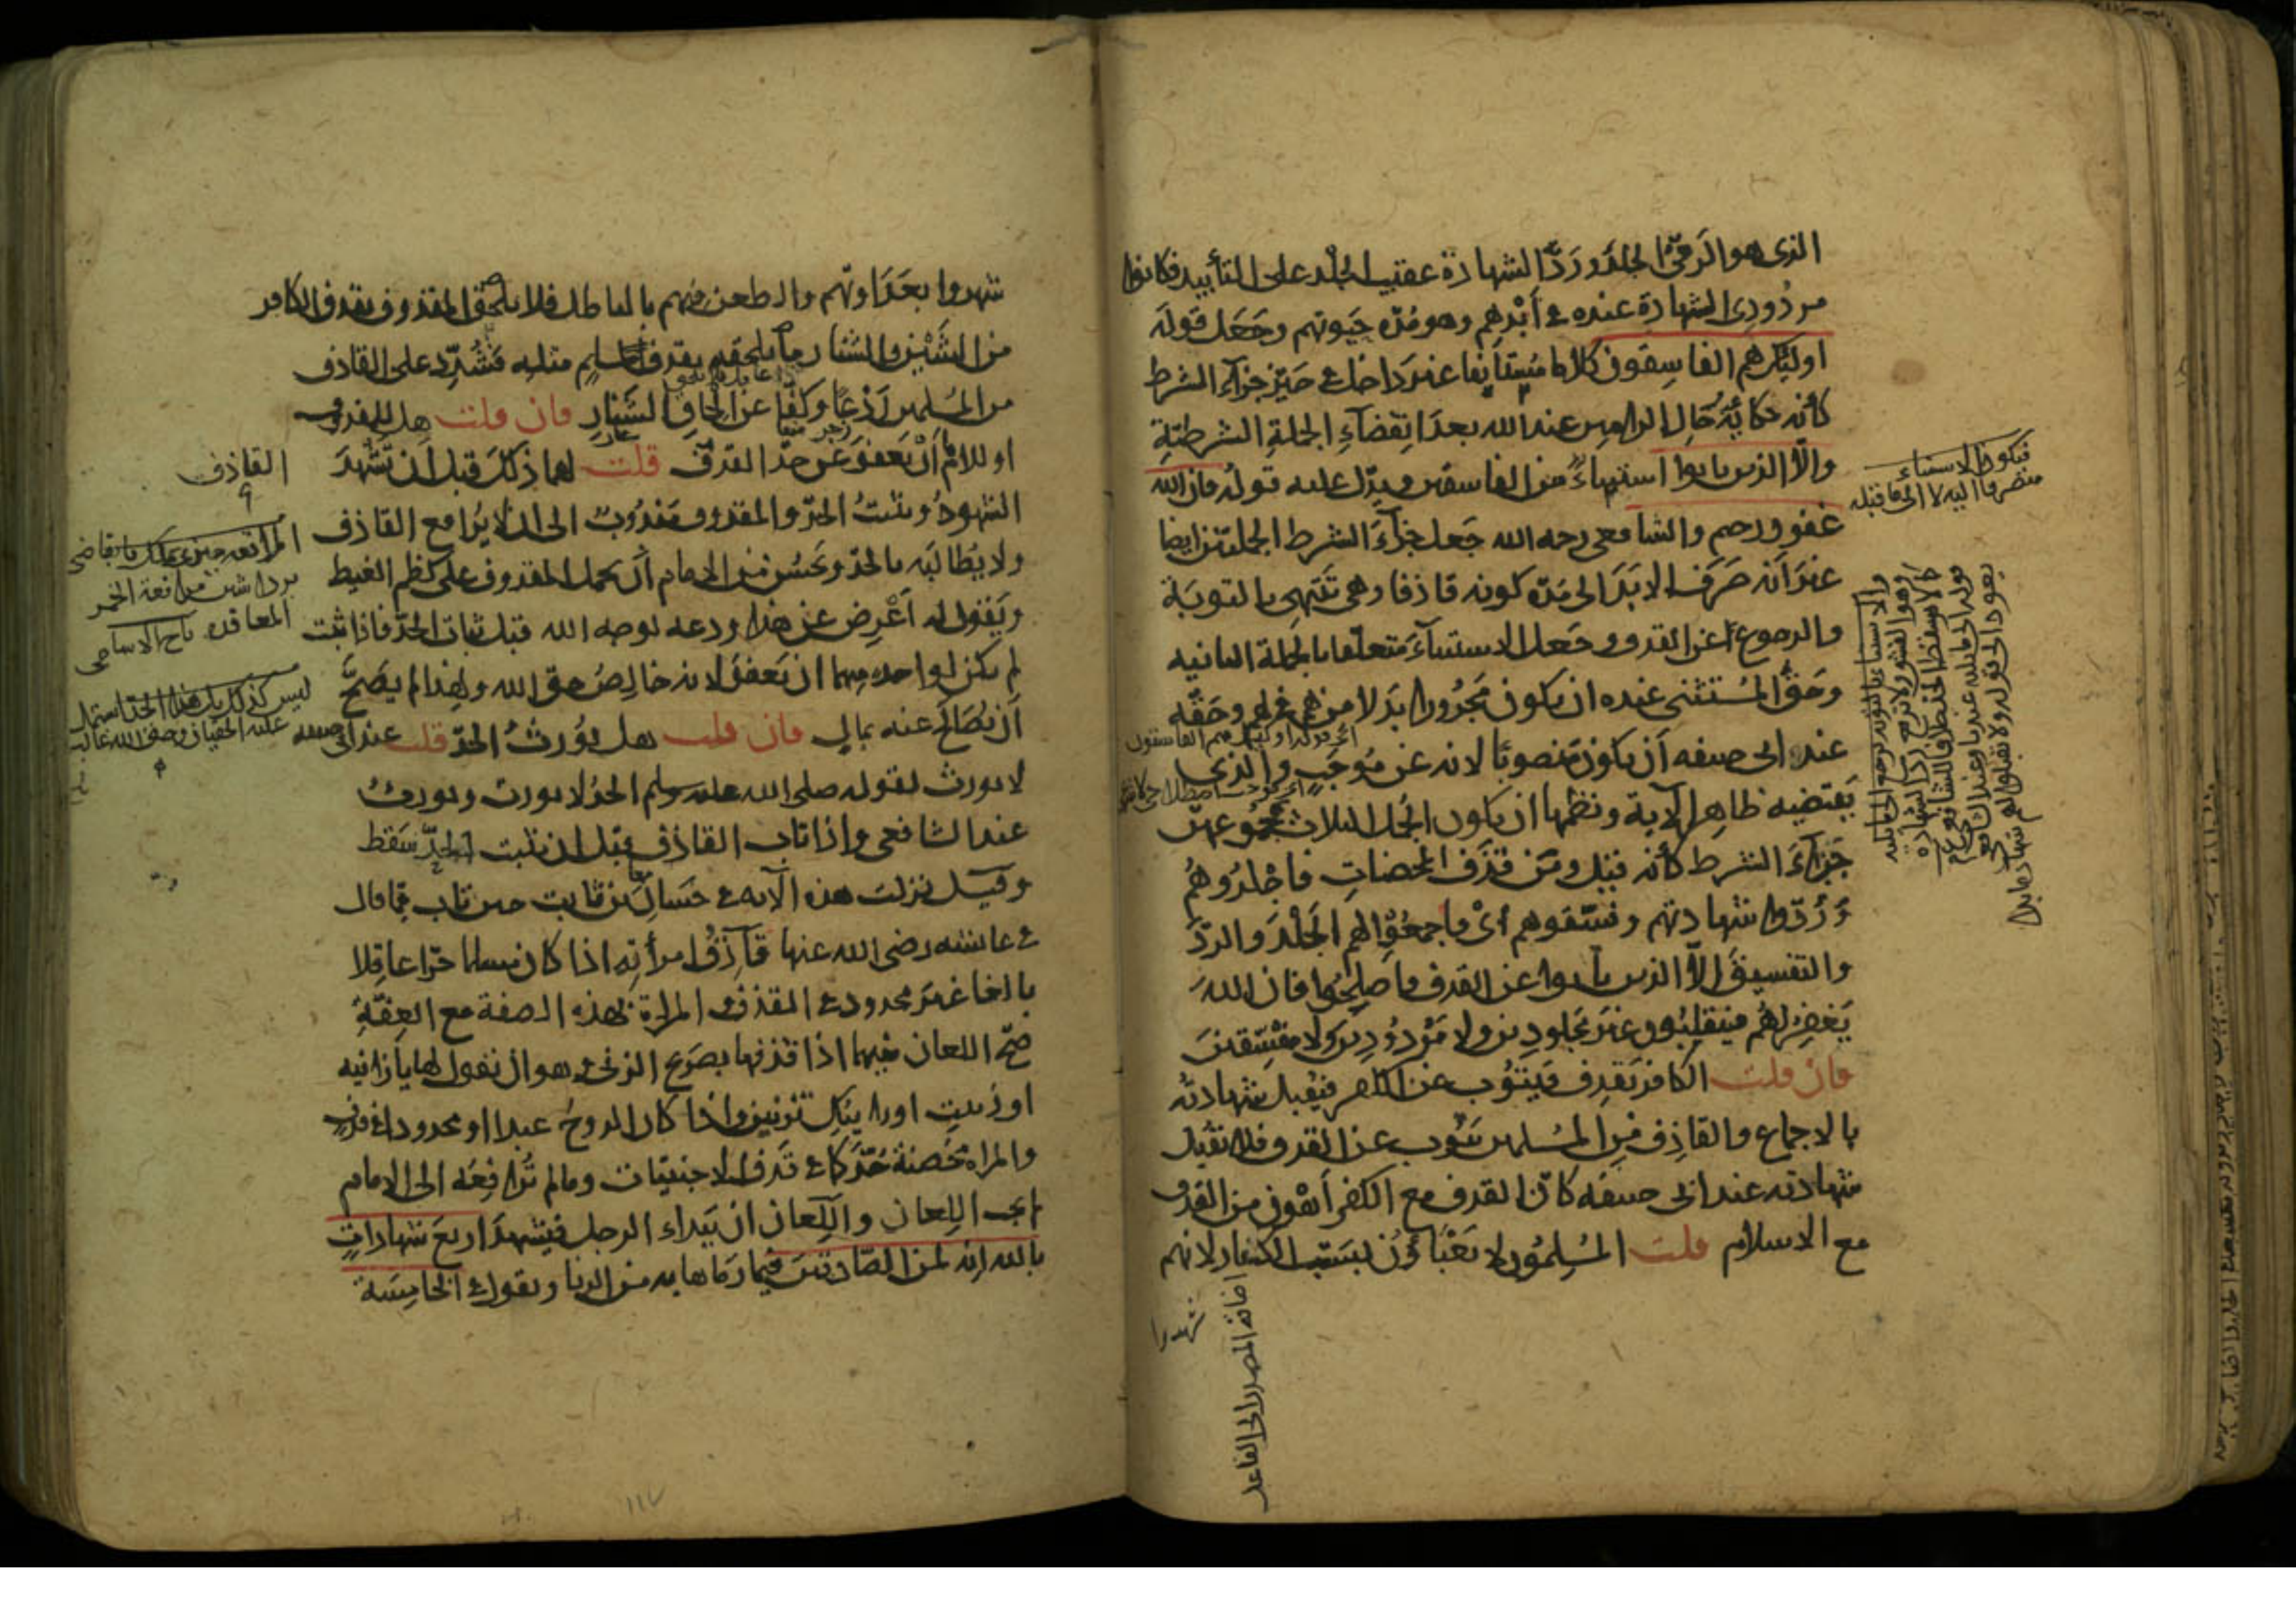 الذى هو الرمى الجلد ورد الشهادة عقيب الجلد على التأبيد فكانوا
مردودى الشهادة عنده فى أبدهم وهو مدة حيوتهم وجعل قوله
اوليك هم الفاسقون كلاما مستأنفا غير داخل فى حيز جزاء الشرط
كأنه حكاية حال الرامين عند الله بعد انقضاء الجملة الشرطية
والا الذين تابوا استثناء من الفاسقين ويدل عليه قوله فان الله
غفور رحيم والشافعى رحمه الله جعل جزاء الشرط الجملتين ايضا
غير أنه صرف الابد الى مدة كونه قاذفا وهى تنتهى بالتوبة
والرجوع عن القذف وجعل الاستثناء متعلقا بالجملة الثانيه
وحق المستثنى عنده ان يكون مجرورا بدلا من هم فى لهم وحقه
عند ابى حنيفه أن يكون منصوبا لانه عن موجب والذى
يقتضيه ظاهر الآية ونظمها ان يكون الجمل الثلاث بمجموعهن
جزاء الشرط كأنه قيل ومن قذف المحصنات فاجلدوهم
وردوا شهادتهم وفسقوهم أى فاجمعوا لهم الجلد والرد
والتفسيق الا الذين تابوا عن القذف واصلحوا فان الله
يغفر لهم فينقلبون غير مجلودين ولا مردودين ولا مفسقين
فان قلت الكافر يقذف فيتوب عن الكفر فيقبل شهادته
بالاجماع والقاذف من المسلمين يتوب عن القذف فلا تقبل
شهادته عند ابى حنيفه كأن القذف مع الكفر أهون من القذف
مع الاسلام قلت المسلمون لا يعبأون بسب الكفار لانهم
شهدوا
فيكون الاستثناء
منصرفا اليه لا الى ما قبله
اضافة المصدر الى الفاعل
شهروا بعداوتهم والطعن فيهم بالباطل فلا يلحق المقذوف بقذف الكافر
من الشين والشنار ما يلحقه بقذف مسلم مثله فشدد على القاذف
من المسلمين ردعا وكفا عن الحاق الشنار فان قلت هل للمقذوف
او للامام أن يعفو عن حد القذف قلت لهما ذلك قبل أن تشهد
الشهود ويثبت الحد والمقذوف مندوب الى ان لا يرافع القاذف
ولا يطالبه بالحد ويحسن من الامام أن يحمل المقذوف على كظم الغيط
ويقول له أعرض عن هذا ودعه لوجه الله قبل ثبات الحد فاذا ثبت
لم يكن لواحد منهما ان يعفو لانه خالص حق الله ولهذا لم يصح
أن يصالح عنه بمال فان قلت هل يورث الحد قلت عند ابى حنيفه
لا يورث لقوله صلى الله عليه وسلم الحد لا يورث ويورث
عند الشافعى واذا تاب القاذف قبل ان يثبت الحد سقط
وقيل نزلت هذه الآيه فى حسان بن ثابت حين تاب مما قال
فى عايشه رضى الله عنها قاذف امرأته اذا كان مسلما حرا عاقلا
بالغا غير محدود فى القذف والمراة بهذه الصفة مع العفة
صح اللعان بينهما اذا قذفها بصريح الزنى وهو ان يقول لها يا زانيه
او زنيت او رايتك تزنين واذا كان الزوج عبدا او محدودا فى قذف
والمراة محصنة حد كما فى قذف الاجنبيات وما لم ترافعه الى الامام
لم يجب اللعان واللعان ان يبداء الرجل فيشهد اربع شهادات
بالله انه لمن الصادقين فيما رماها به من الزنا ويقول فى الخامسة
القاذف
ليس كذلك بل هذا الحد اشتمل
عليه الحقان وحق الله غالب